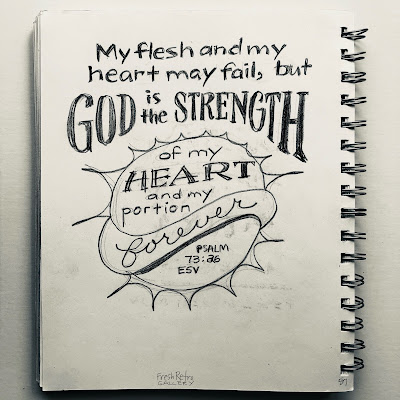 My flesh and my
heart may fail, but
GOD is the STRENGTH
of my
HEART
and my
portion
forever
PSALM
73:26
ESV
Fresh Retro
GALLERY